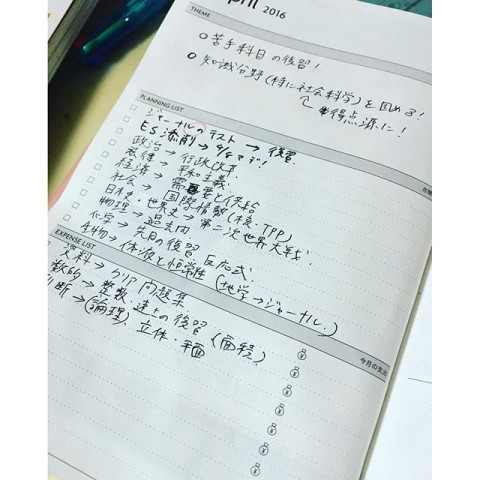 April 2016
THEME
○苦手科目の復習!
○知識分野(特に社会科学)を固める!
得点源に!
PLANNING LIST
ジャーナルのテスト→復習
ES添削→ 4/8マデ!
政治→行政改革
法律→平和主義
経済→需要と供給
社会→国際情勢(株、TPP)
日本史・世界史→第二次世界大戦
物理→過去問
化学→先月の復習 反応式
生物→体液と恒常性(地学→ジャーナル)
EXPENSE LIST
今月の支出
資料→クリア問題集
数的→整数・速上の復習
判断→(論理)、立体・平面(面積)